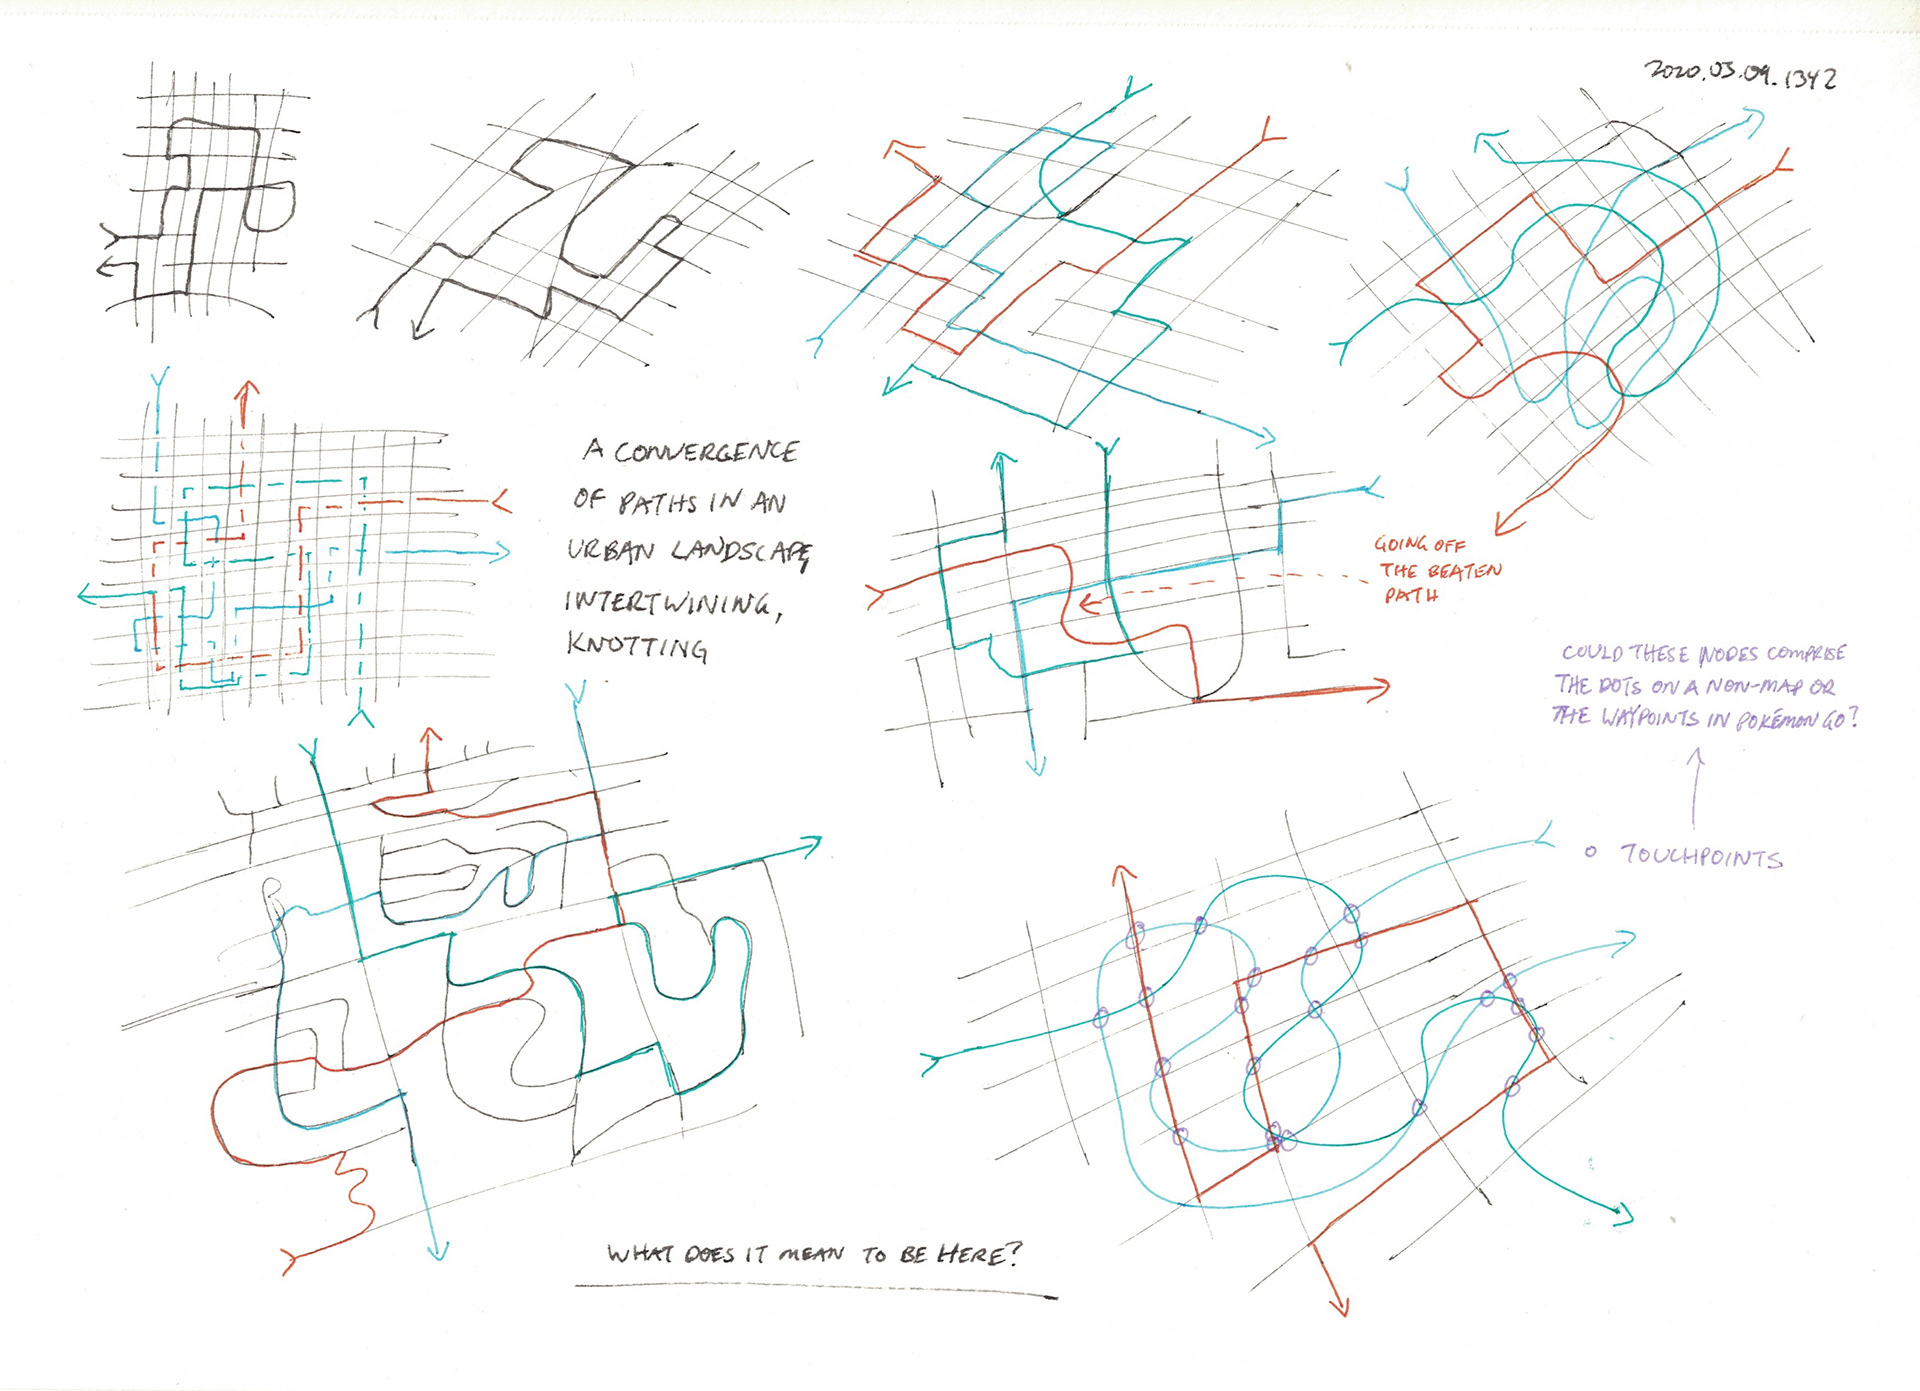 2020.03.09.1342
A CONVERGENCE
OF PATHS IN AN
URBAN LANDSCAPE,
INTERTWINING,
KNOTTING
GOING OFF
THE BEATEN
PATH
COULD THESE NODES COMPRISE
THE DOTS ON A NON-MAP OR
THE WAYPOINTS IN POKÉMON GO?
O TOUCHPOINTS
WHAT DOES IT MEAN TO BE HERE?